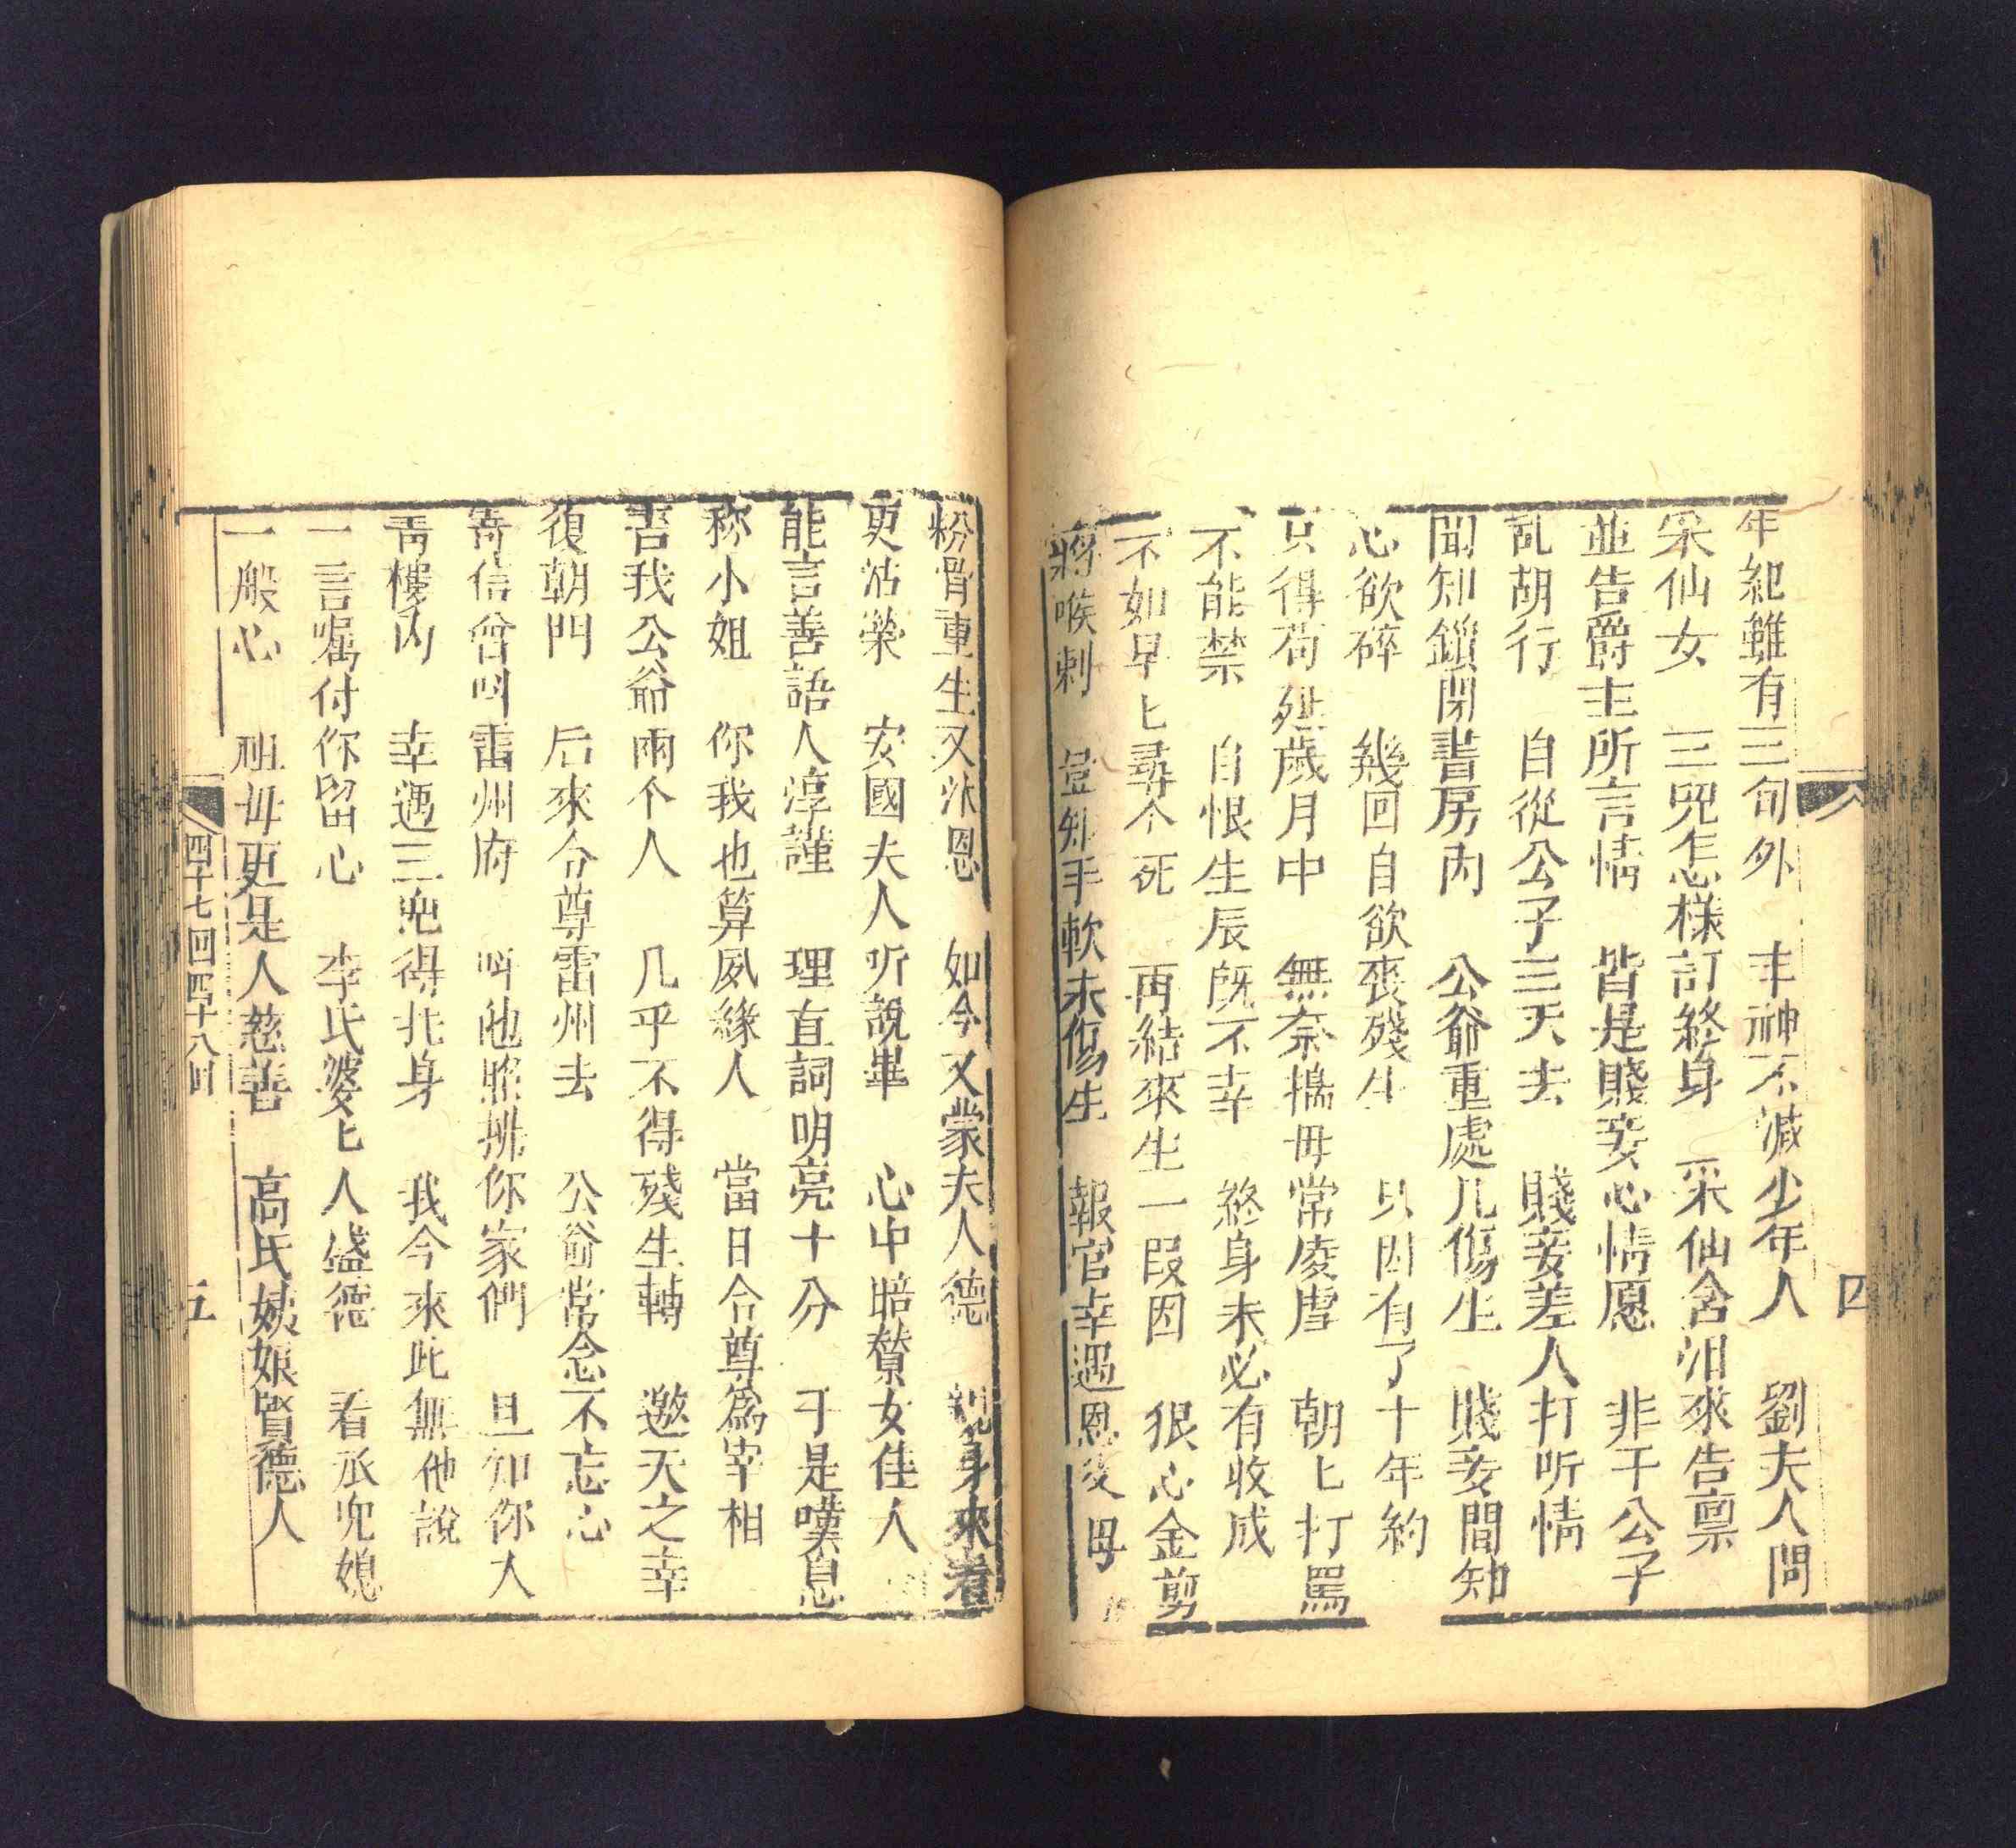 年紀雖有三旬外　丰神不減少年人　劉夫人問
采仙女　三兕怎樣訂終身　采仙含泪來告禀
並告爵主所言情　皆是賤妾心情愿　非干公子
乱胡行　自從公子三天去　賤妾差人打听情
聞知鎖閉書房內　公爺重處几傷生　賤妾間知
心欲碎　幾回自欲丧殘生　只因有了十年約
只得苟延歲月中　無奈搗毋常凌虐　朝匕打罵
不能禁　自恨生辰旣不幸　終身未必有收成
不如早匕尋个死　再結來生一叚因　狠心金剪
將喉刺　豈知手軟未傷生　報官幸遇恩父母
四
粉骨重生又沐恩　如今又蒙夫人德　親身來看
更沾榮　安國夫人听說畢　心中暗賛女佳人
能言善語人淳謹　理直詞明亮十分　于是嘆息
称小姐　你我也算夙緣人　當日令尊爲宰相
害我公爺兩个人　几乎不得殘生轉　邀天之幸
復朝門　后來令尊雷州去　公爺常念不忘心
寄信曾叫雷州府　叫他照拂你家們　旦知你人
靑樓內　幸遇三兕得托身　我今來此無他說
一言嘱付你留心　李氏婆匕人盛德　看承兕媳
一般心　祖毋更是人慈善　高氏姨娘賢德人
四十七回四十八回
五